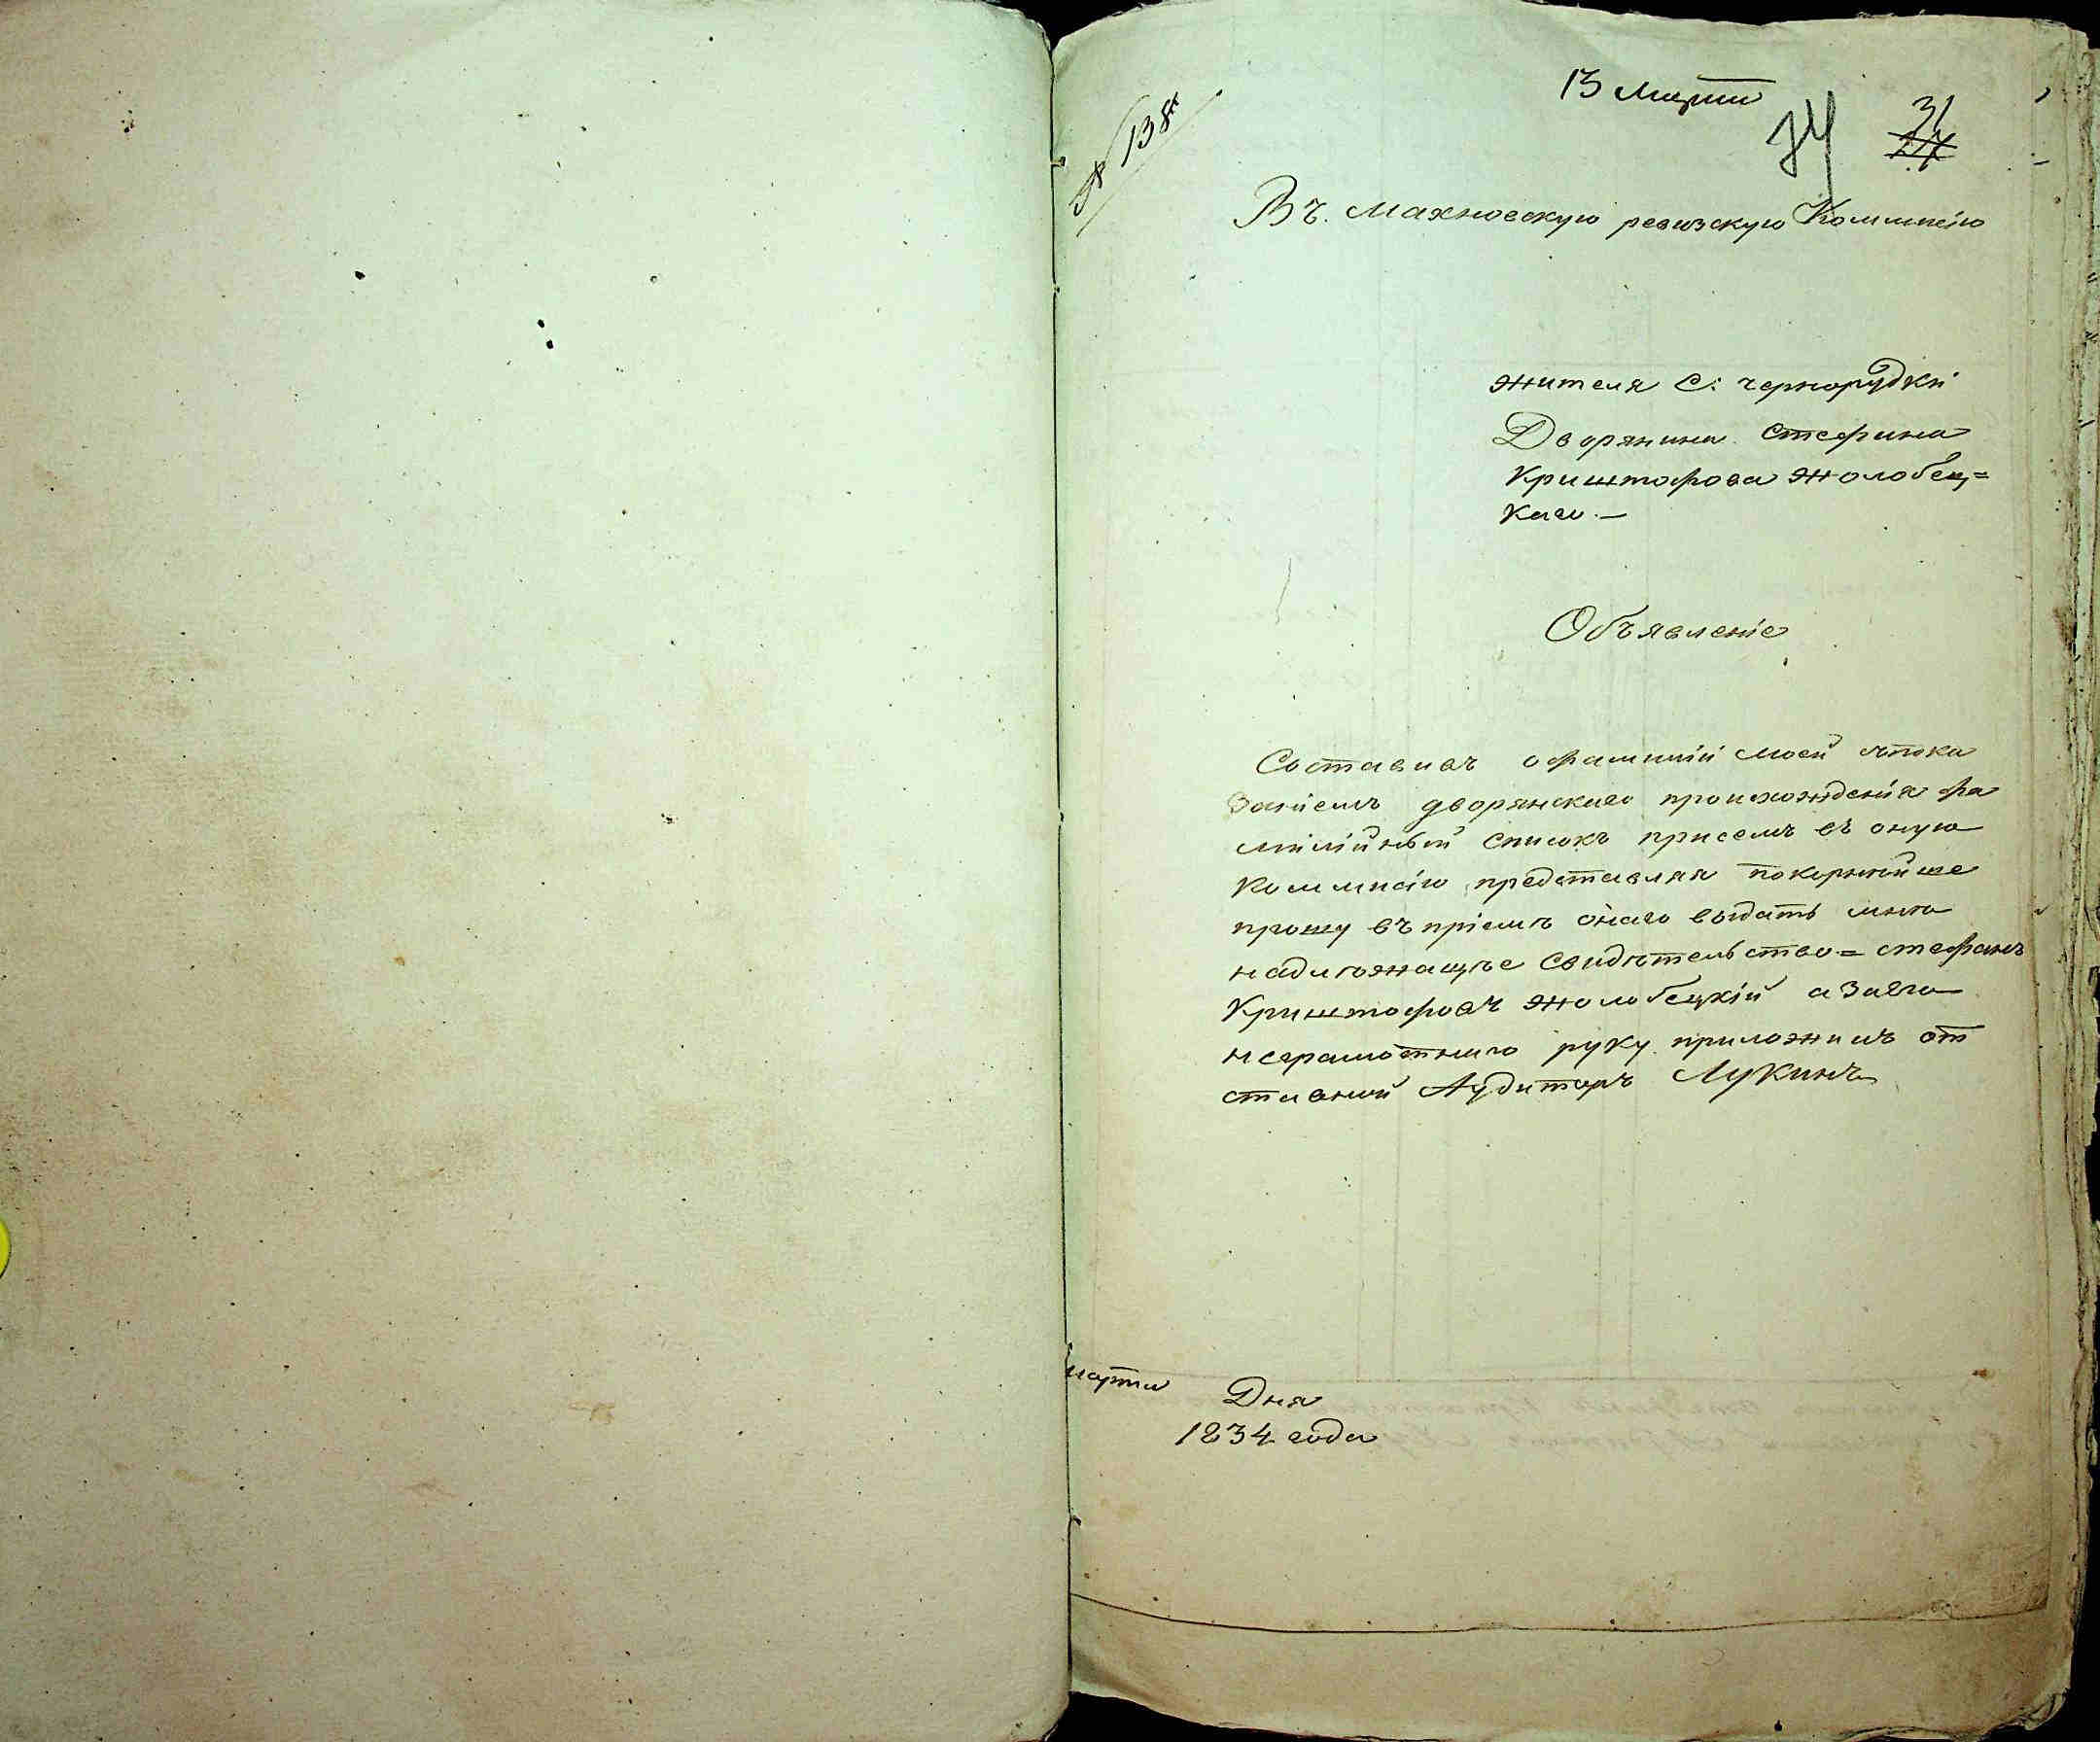 13 Марта
№ 138
74 31
27
Въ Махновскую ревизскую Коммисію
жителя С: Чернорудки
Дворянина Стефана
Криштофова Жолобец=
каго. —
Объявленіе
Составивъ офамиліи моей спока
заніемъ дворянскаго происхожденія фа
милійный списокъ присемъ въ оную
Коммисію представляя покорнейше
прошу въ пріемъ онаго выдать мнѣ
надлѣжащѣе свидѣтельство = Стефанъ
Криштофовъ Жолобецкій а Заего
неграмотнаго руку приложилъ от
ставной Аудиторъ Лукинъ
марта Дня
1834 года